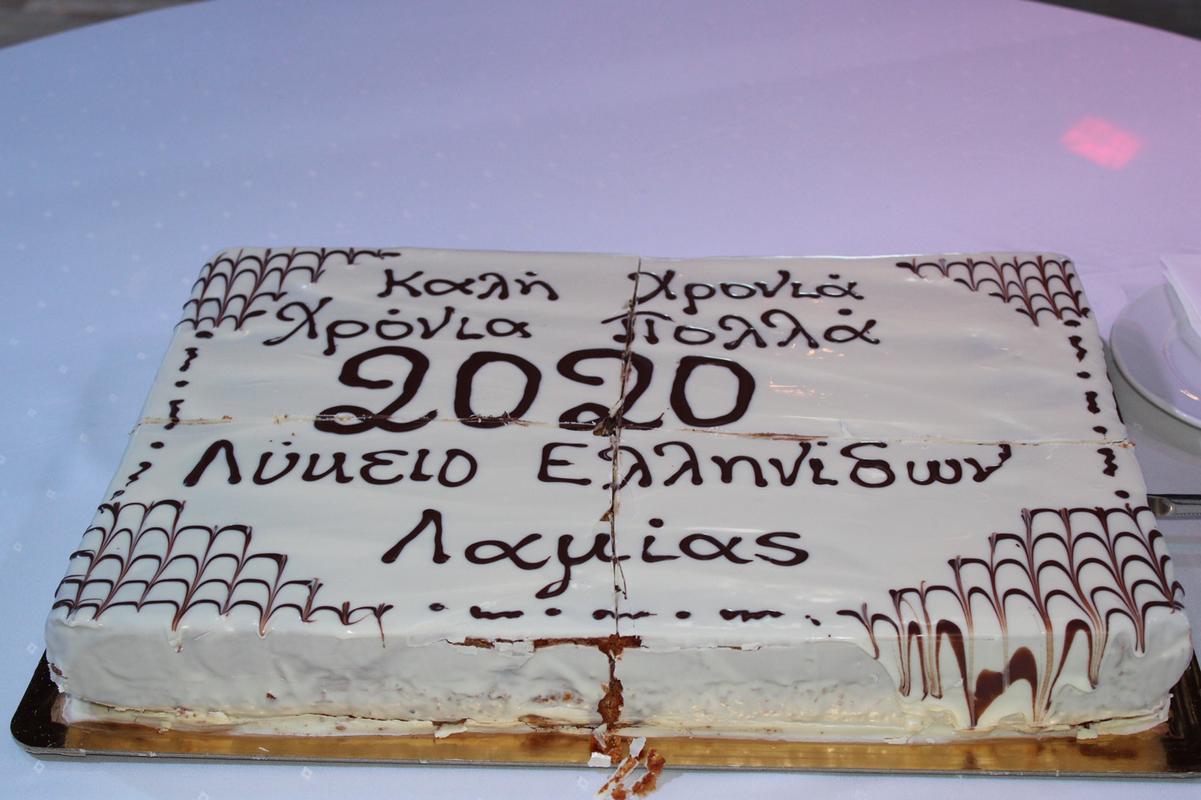 Καλή Χρονιά
Χρόνια Πολλά
2020
Λύκειο Ελληνίδων
Λαμίας